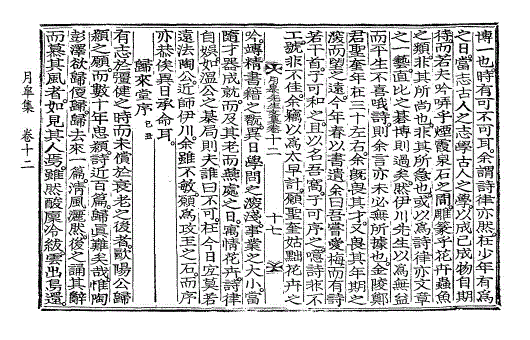 博一也時有可不可耳余謂詩律亦然在少年有爲
之日當志古人之志學古人之學以成己成物自期
待而若夫吟哢乎煙霞泉石之間雕篆乎花卉蟲魚
之類非其所尙也非其所急也或以爲詩律亦文章
之一藝面比之碁博則過矣然伊川先生以爲無益
而平生不喜哦詩則余言亦未必無所據也金陵鄭
君聖奎年在三十左右余旣畏其才又畏其年期之
茂而望之遠今年春以書遺余曰吾嘗愛梅而有詩
若干首子可和之且以名吾窩子可序之噫詩非不
工號非不佳余竊以爲太早計願聖奎姑黜花卉之
月皐先生文集卷十二 十七
吟竱精書籍之翫異日學問之淺深事業之大小當
隨才器成就而及其老而燕處之日寓情花卉詩律
自娛如溫公之碁局則夫誰曰不可在今日宜莫若
遠法陶公近師伊川余雖不敏願爲攻玉之石而序
亦恭俟異日承命耳
歸來堂序 己丑
有志於彊健之時而未償於衰老之後者歐陽公歸
潁之願而數十年思潁詩近百篇歸眞難矣哉惟陶
彭澤欲歸便歸歸去來一篇淸風灑然後之誦其辭
而慕其風者如見其人焉雖然酸廩冷級雲出鳥還
月皐集 卷十二